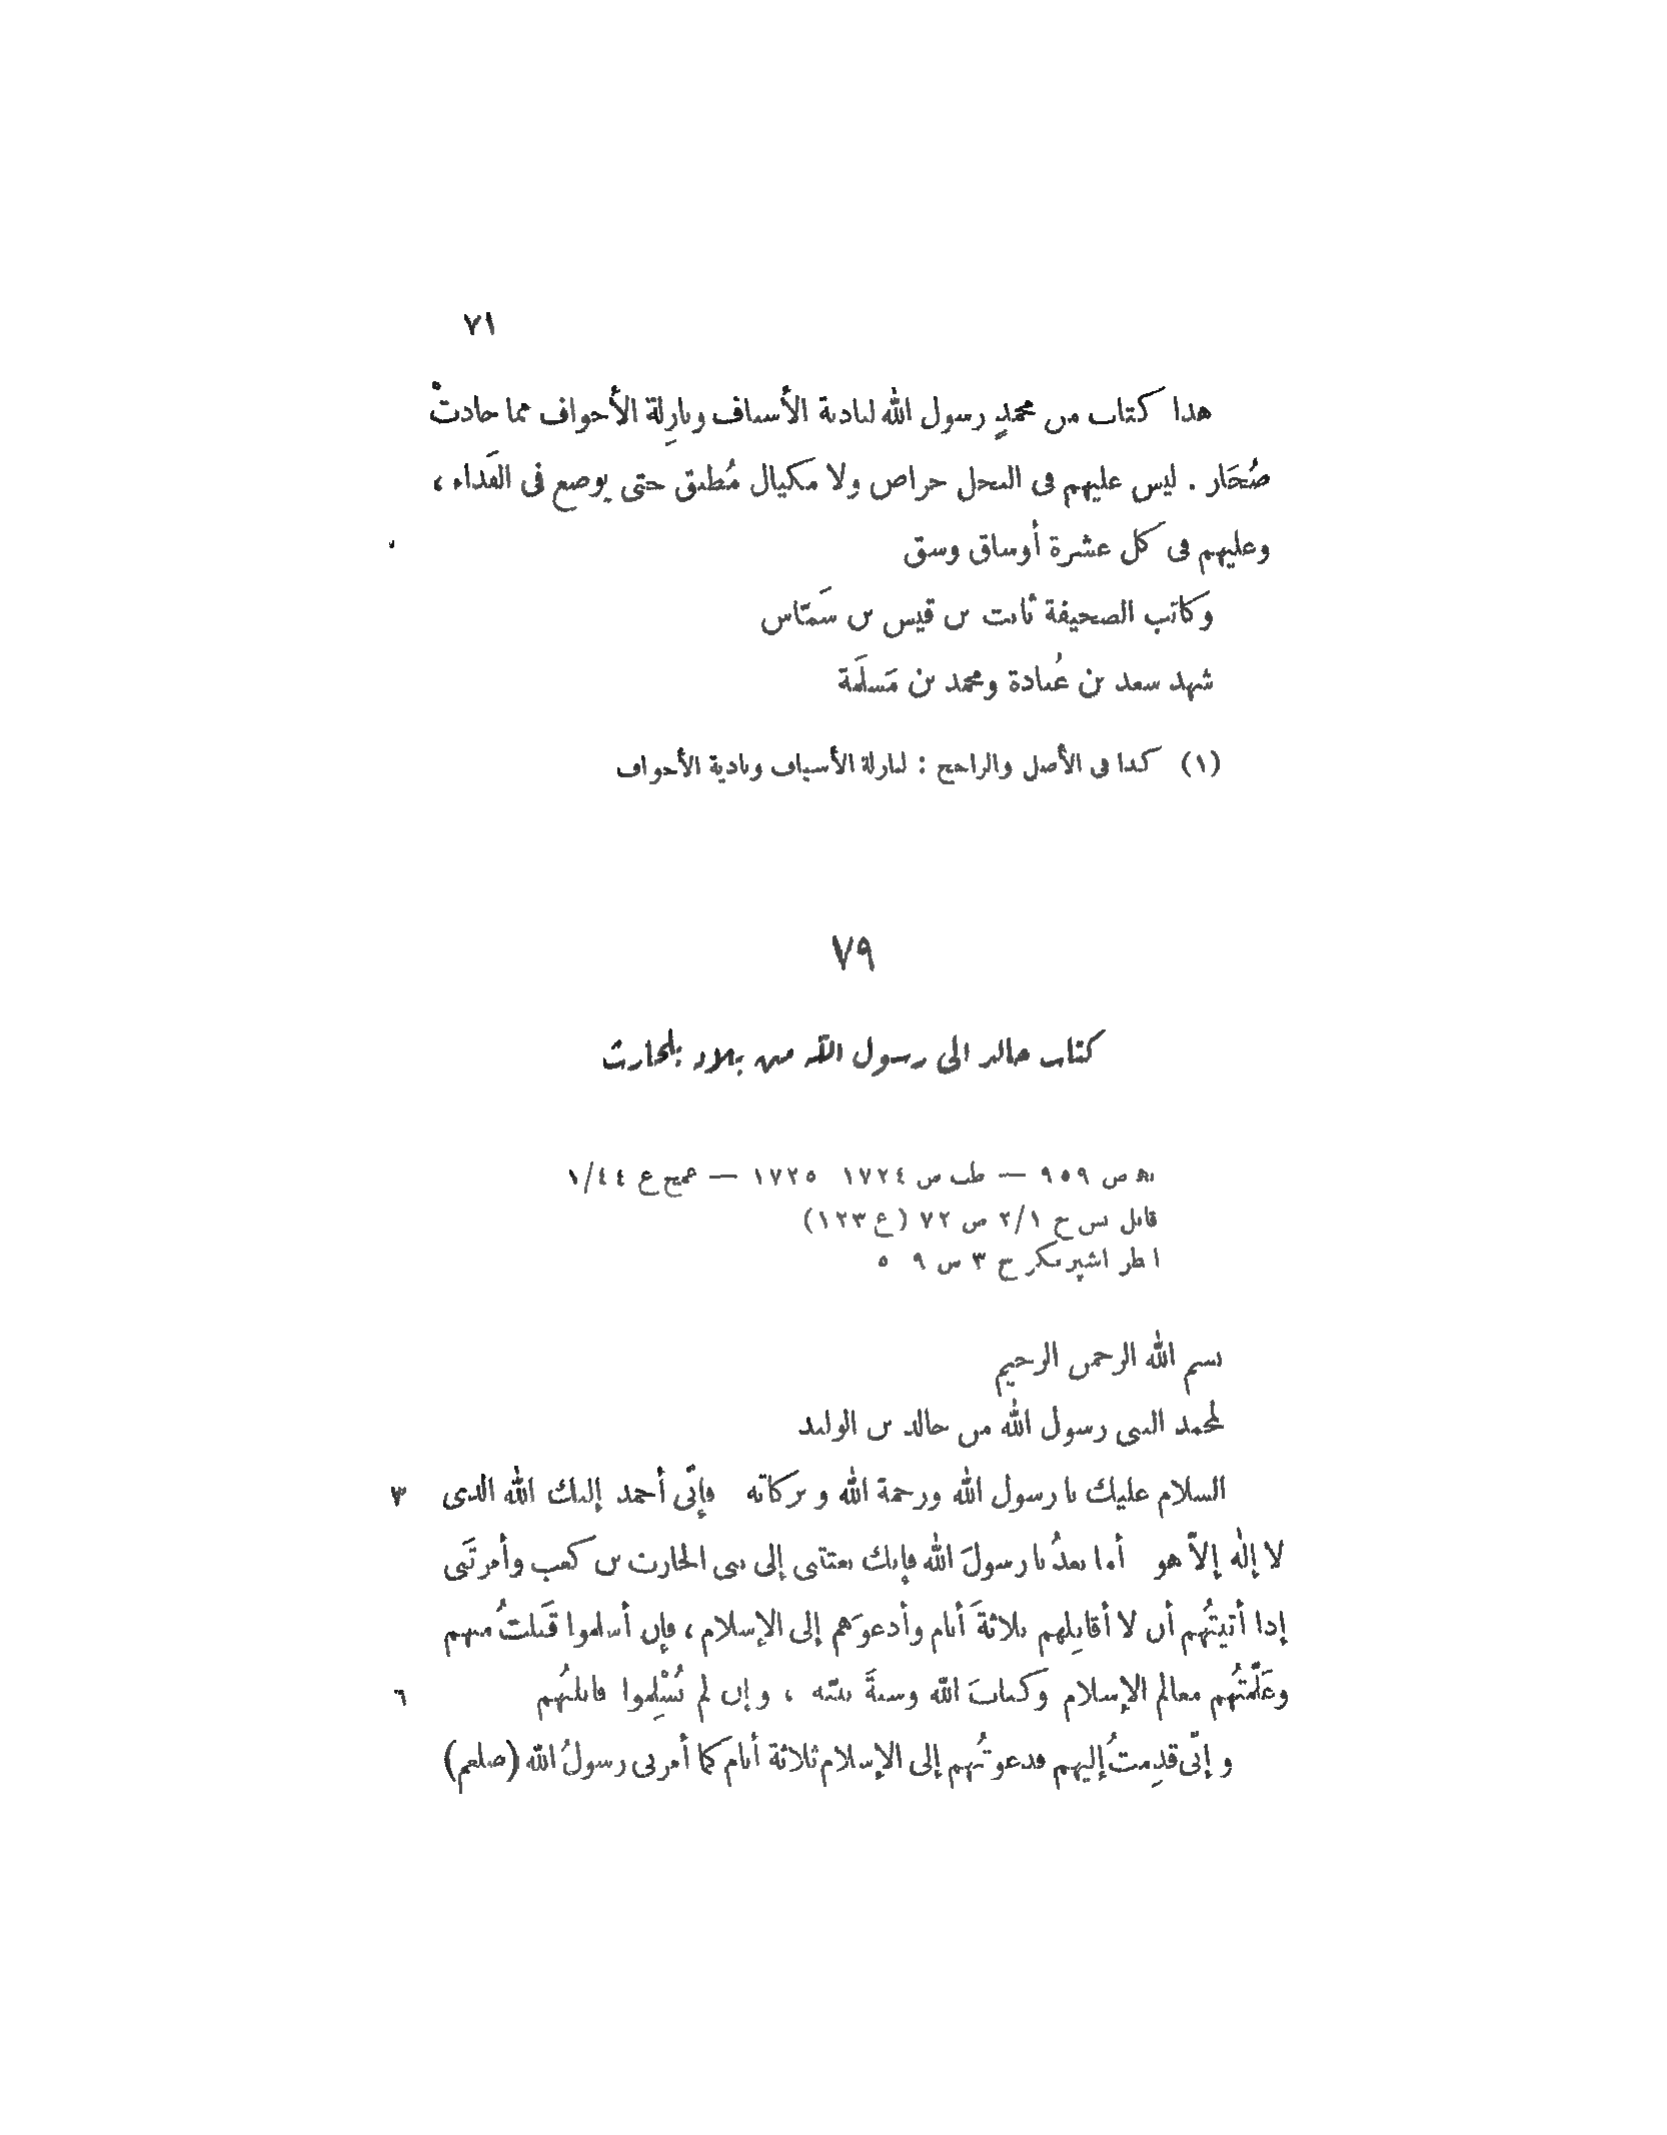 ٧١
هذا كتاب من محمدٍ رسول الله لبادية الأسياف ونازِلة الأجواف مما حاذتْ
صُحَار . ليس عليهم فى النخل خراص ولا مكيال مُطبق حتى يوضع فى الفَداء ،
وعليهم فى كل عشرة أوساق وسق
وكاتب الصحيفة ثابت بن قيس بن شَمّاس
شهد سعد بن عُبادة ومحمد بن مَسلَمة
(١) كذا فى الأصل والراجح : لنازلة الأسياف وبادية الأجواف
٧٩
كتاب خالد الى رسول الله من بلاد بلحارث
به ص ٩٥٩ — طب ص ١٧٢٤ ١٧٢٥ — عمخ ع ١/٤٤
قابل بس ج ٢/١ ص ٧٢ (ع ١٢٣)
انظر اشپرنكر ج ٣ ص ٥٠٩
بسم الله الرحمن الرحيم
لمحمد النبى رسول الله من خالد بن الوليد
السلام عليك يا رسول الله ورحمة الله وبركاته فإنّى أحمد إليك الله الذى ٣
لا إلٰه إلاّ هو أما بعدُ يا رسولَ الله فإنك بعثتنى إلى بنى الحارث بن كعب وأمرتَنى
إذا أتيتُهم أن لا أقاتِلهم ثلاثةَ أيام وأدعوَهم إلى الإسلام ، فإن أسلموا قَبلتُ منهم
وعَلّمتُهم معالم الإسلام وكتابَ الله وسنةَ نبيّه ، وإن لم يُسْلِموا قاتلتُهم ٦
وإنّى قدِمتُ إليهم فدعوتُهم إلى الإسلام ثلاثة أيام كما أمرنى رسولُ الله (صلعم)